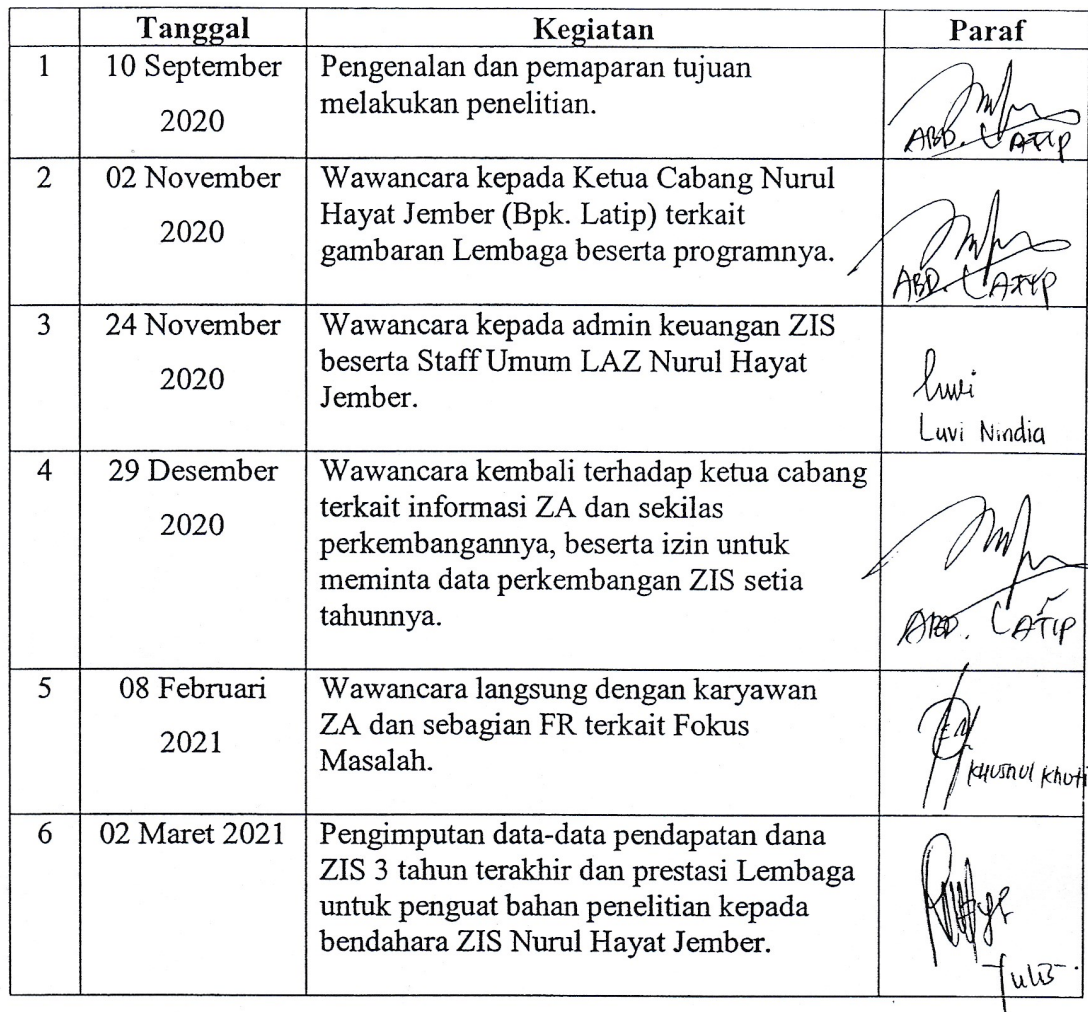 Tanggal Kegiatan Paraf
1 10 September Pengenalan dan pemaparan tujuan
2020 melakukan penelitian.
ABD. LATIP
2 02 November Wawancara kepada Ketua Cabang Nurul
2020 Hayat Jember (Bpk. Latip) terkait
gambaran Lembaga beserta programnya.
ABD. LATIP
3 24 November Wawancara kepada admin keuangan ZIS
2020 beserta Staff Umum LAZ Nurul Hayat
Jember.
Luvi
Luvi Nindia
4 29 Desember Wawancara kembali terhadap ketua cabang
2020 terkait informasi ZA dan sekilas
perkembangannya, beserta izin untuk
meminta data perkembangan ZIS setia
tahunnya.
ABD. LATIP
5 08 Februari Wawancara langsung dengan karyawan
2021 ZA dan sebagian FR terkait Fokus
Masalah.
Khusnul Khoti
6 02 Maret 2021 Pengimputan data-data pendapatan dana
ZIS 3 tahun terakhir dan prestasi Lembaga
untuk penguat bahan penelitian kepada
bendahara ZIS Nurul Hayat Jember.